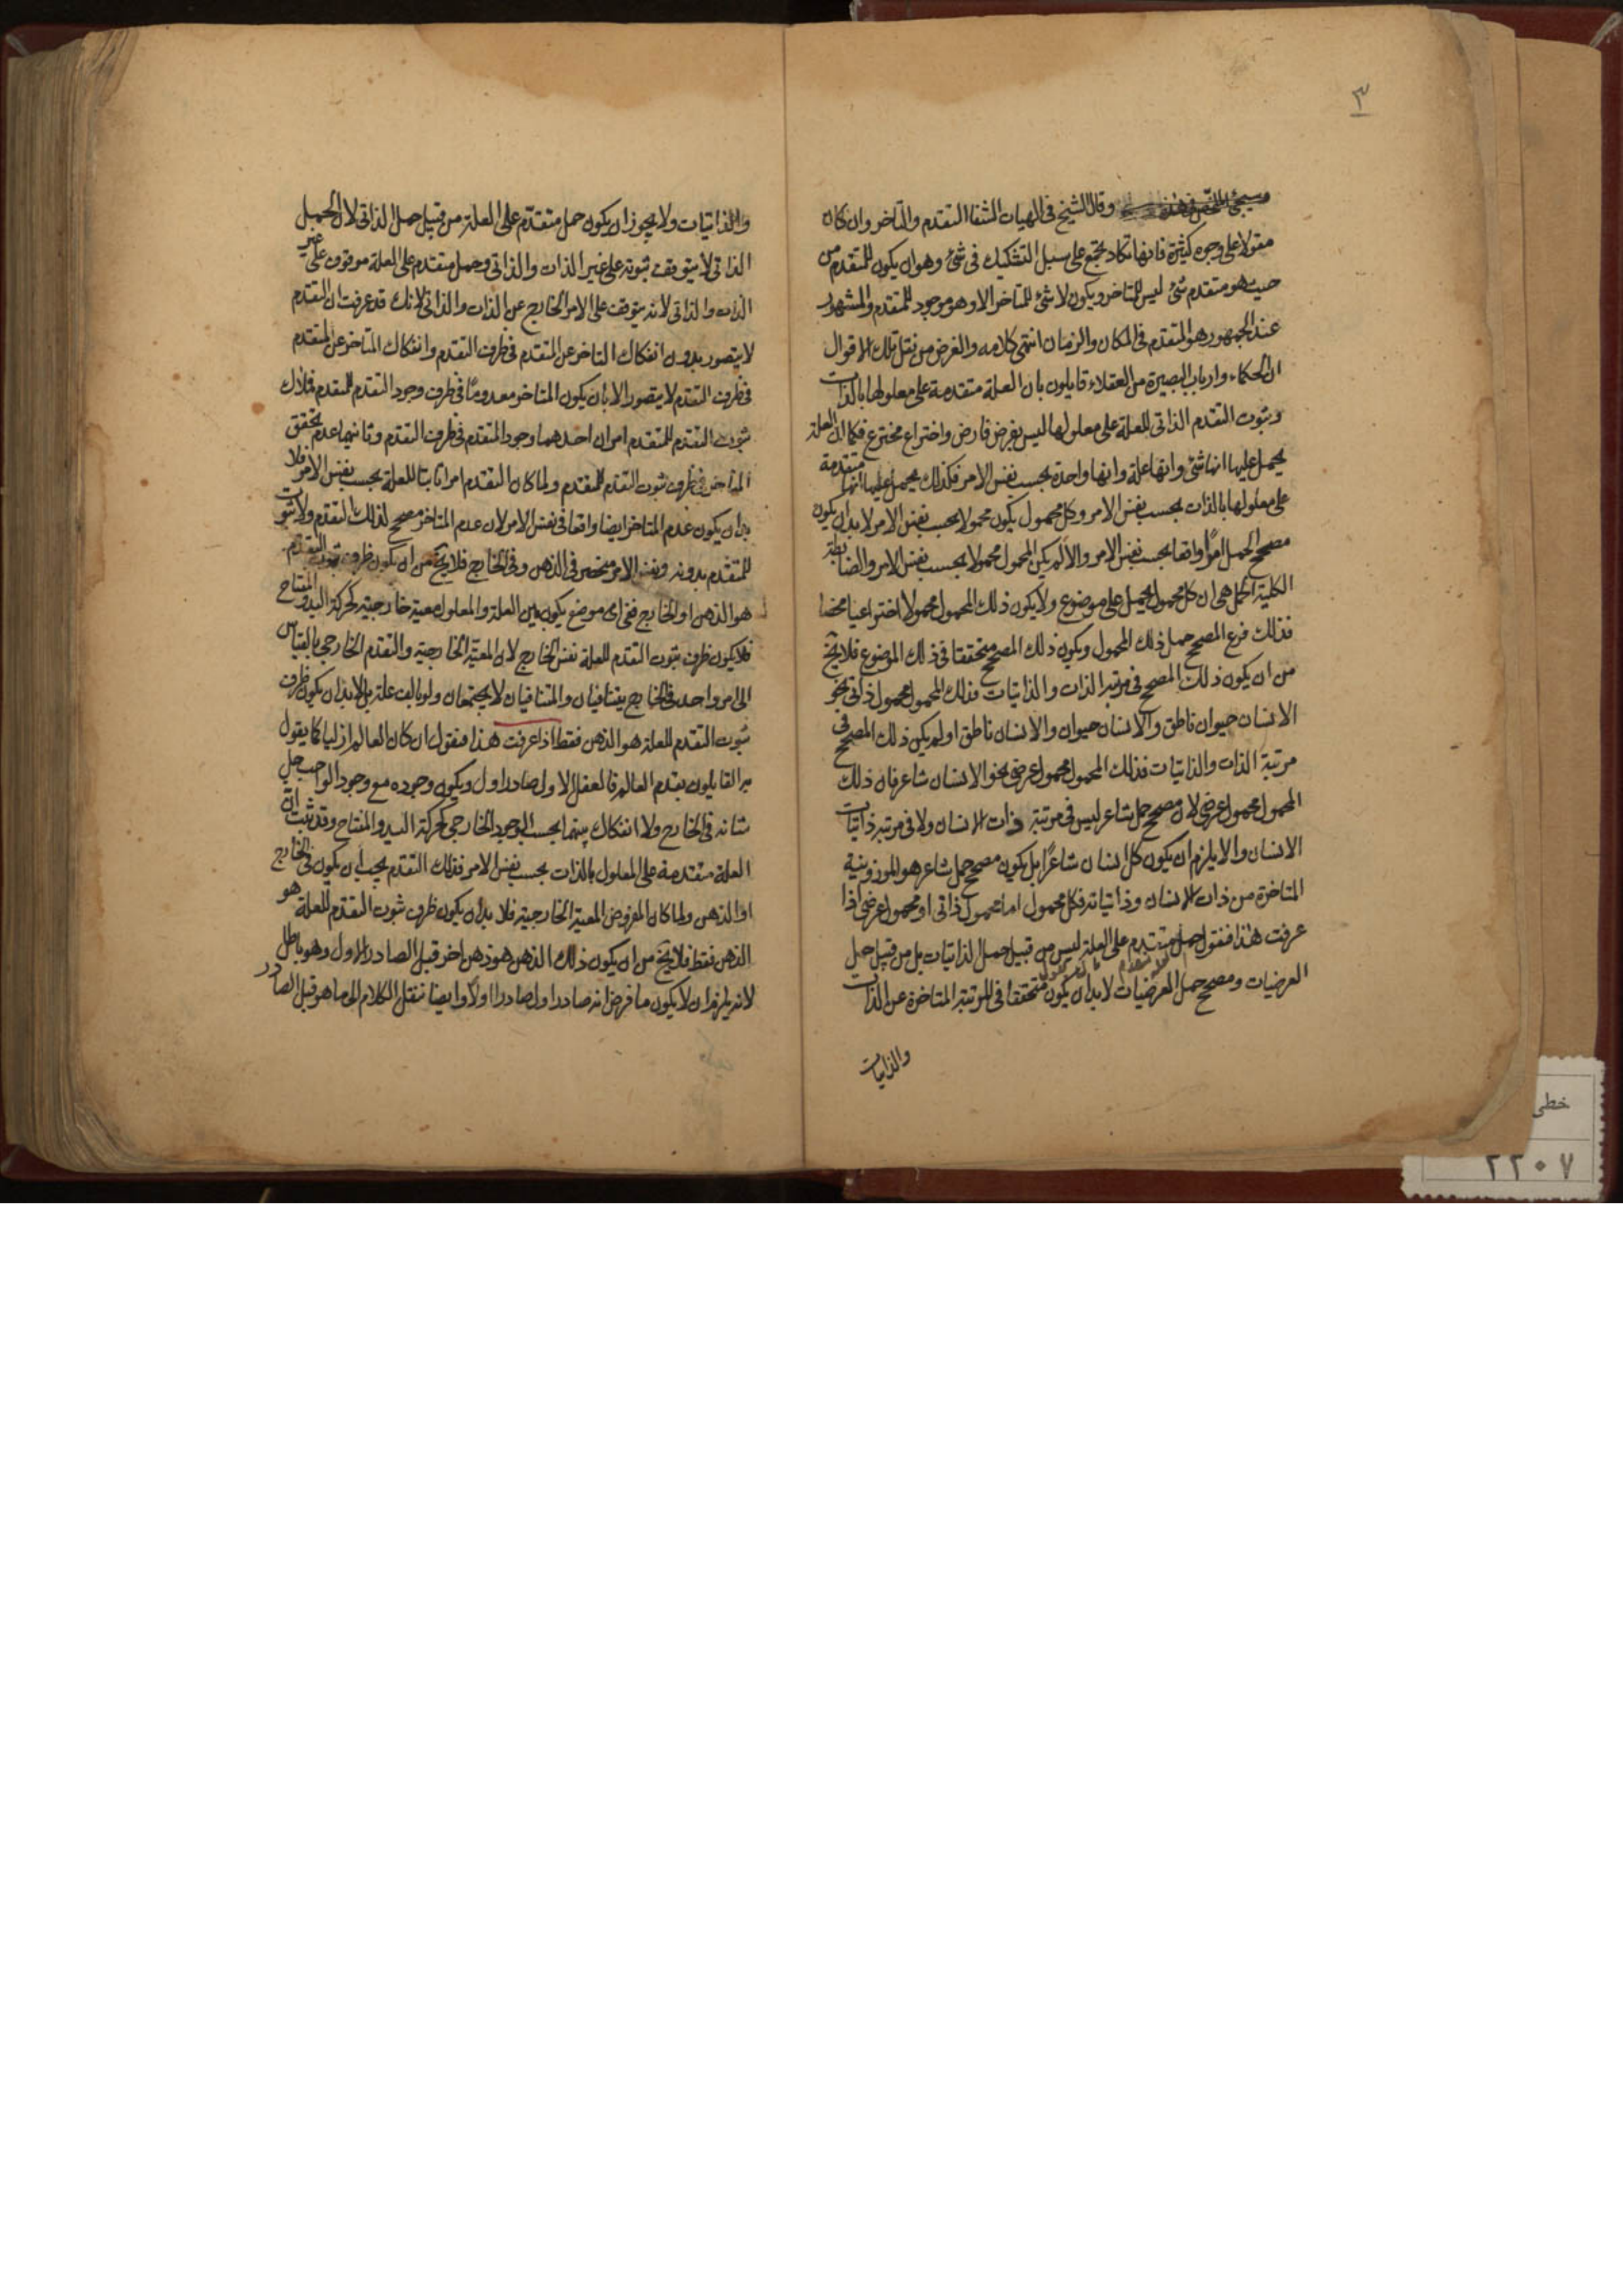 ٣
وسيجئ وقال الشيخ فى الهيات الشفا التقدم والتاخر وان كان
مقولا على وجوه كثيرة فانها تكاد تجتمع على سبيل التشكيك فى شئ وهو ان يكون للمتقدم من
حيث هو متقدم شئ ليس للتاخر ويكون لا شئ للمتاخر الا وهو موجود للمتقدم والمشهور
عند الجمهور هو المتقدم فى المكان والزمان انتهى كلامه والغرض من نقل تلك الاقوال
ان الحكماء وارباب البصيرة من العقلاء قايلون بان العلة متقدمة على معلولها بالذات
وثبوت التقدم الذاتى للعلة على معلولها ليس بفرض فارض واختراع مخترع فكما ان العلة
يحمل عليها انها شئ وانها علة وانها واحدة بحسب نفس الامر فكذلك يحمل عليها انها متقدمة
على معلولها بالذات بحسب نفس الامر وكل محمول يكون محمولا بحسب نفس الامر لا بد ان يكون
مصحح الحمل امرًا واقعا بحسب نفس الامر والا لم يكن المحمول محمولا بحسب نفس الامر والضابطة
الكلية الحمل هى ان كل محمول يحمل على موضوع ولا يكون ذلك المحمول محمولا اختراعيا محضا
فذلك فرع المصحح حمل ذلك المحمول ويكون ذلك المصحح متحققا فى ذلك الموضوع فلا يخ
من ان يكون ذلك المصحح فى مرتبة الذات والذاتيات فذلك المحمول محمول ذاتى نحو
الانسان حيوان ناطق والانسان حيوان والانسان ناطق او لم يكن ذلك المصحح فى
مرتبة الذات والذاتيات فذلك المحمول محمول عرضى نحو الانسان شاعر فان ذلك
المحمول محمول عرضى لان مصحح حمل شاعر ليس فى مرتبة ذات الانسان ولا فى مرتبة ذاتيات
الانسان والا يلزم ان يكون كل انسان شاعرًا بل يكون مصحح حمل شاعر هو الموزونية
المتاخرة من ذات الانسان وذاتياته فكل محمول اما محمول ذاتى او محمول عرضى اذا
عرفت هذا فنقول حمل متقدم على العلة ليس من قبيل حمل الذاتيات بل من قبيل حمل
العرضيات ومصحح حمل العرضيات لا بد ان يكون متحققا فى المرتبة المتاخرة عن الذات
والذاتيات
والذاتيات ولا يجوز ان يكون حمل متقدّم على العلة من قبيل حمل الذاتى لان الحمل
الذاتى لا يتوقف ثبوته على غير الذات والذاتى وحمل متقدم على العلة موقوف على غير
الذات والذاتى لانه يتوقف على الامر الخارج عن الذات والذاتى لانك قد عرفت ان التقدم
لا يتصور بدون انفكاك التاخر عن المتقدم فى ظرف التقدم وانفكاك المتاخر عن المتقدم
فى ظرف التقدم لا يتصور الا بان يكون المتاخر معدومًا فى ظرف وجود التقدم للمتقدم فملاك
ثبوت التقدم للمتقدم امران احدهما وجود المتقدم فى ظرف التقدم وثانيهما عدم تحقق
المتاخر فى ظرف ثبوت التقدم للمتقدم ولما كان التقدم امرا ثابتا للعلة بحسب نفس الامر فلا
بد ان يكون عدم المتاخر ايضا واقعا فى نفس الامر لان عدم المتاخر مصحح لذلك التقدم ولا ثبوت
للمتقدم بدونه ونفس الامر منحصر فى الذهن وفى الخارج فلا يخ من ان يكون ظرف ثبوت التقدم
هو الذهن او الخارج ففى اى موضع يكون بين العلة والمعلول معية خارجية كحركة اليد والمفتاح
فلا يكون ظرف ثبوت التقدم للعلة نفس الخارج لان المعية الخارجية والتقدم الخارجى بالقياس
الى امر واحد فى الخارج يتنافيان والمتنافيان لا يجتمعان ولو بالف علة بل لا بد ان يكون ظرف
ثبوت التقدم للعلة هو الذهن فقط اذا عرفت هذا فنقول ان كان العالم ازليا كما يقول
به القايلون بقدم العالم فالعقل الاول صادر اول ويكون وجوده مع وجود الواجب جل
شانه فى الخارج ولا انفكاك بينهما بحسب الوجود الخارجى كحركة اليد والمفتاح وقد ثبت ان
العلة متقدمة على المعلول بالذات بحسب نفس الامر فذلك التقدم يجب ان يكون فى الخارج
او الذهن ولما كان المفروض المعية الخارجية فلا بد ان يكون ظرف ثبوت التقدم للعلة هو
الذهن فقط فلا يخ من ان يكون ذلك الذهن هو ذهن اخر قبل الصادر الاول وهو باطل
لانه يلزم ان لا يكون ما فرض انه صادرا اول صادرا اولا وايضا ننقل الكلام الى ما هو قبل الصادر
خطى
٢٢٠٧